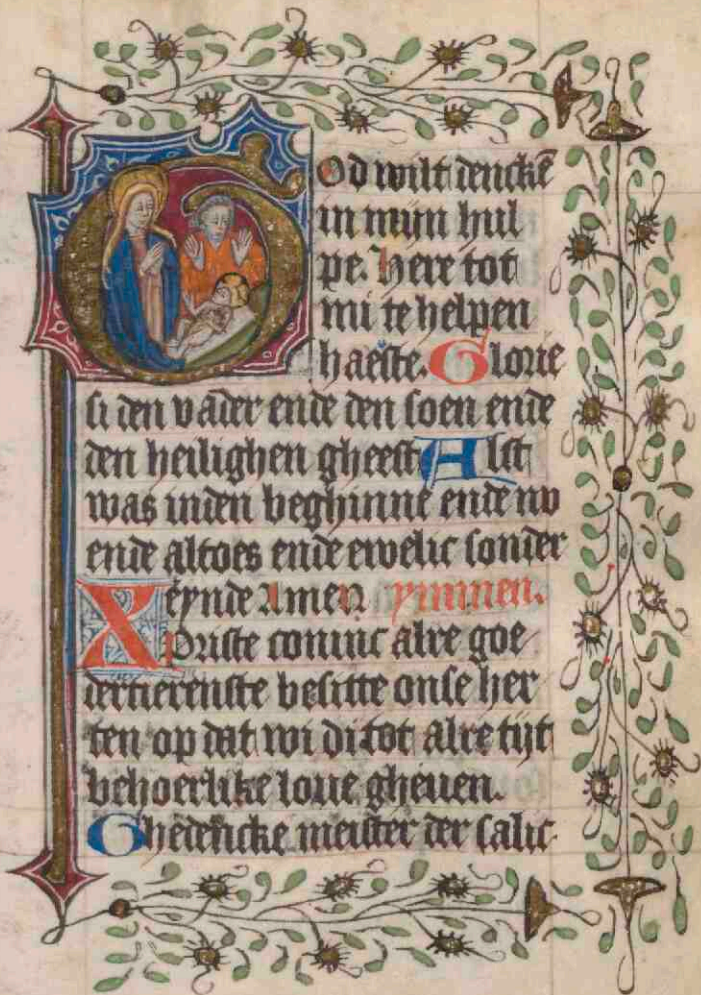 God wilt denckē
in mijn hul
pe. Here tot
mi te helpen
haeste. Glorie
si den vader ende den soen ende
den heilighen gheest Alst
was inden beghinne ende nv
ende altoes ende ewelic sonder
eynde Amen ymmen.
Xpriste coninc alre goe
dertierenste besitte onse her
ten op dat wi di tot alre tijt
behoerlike loue gheuen.
Ghedencke meister der salic